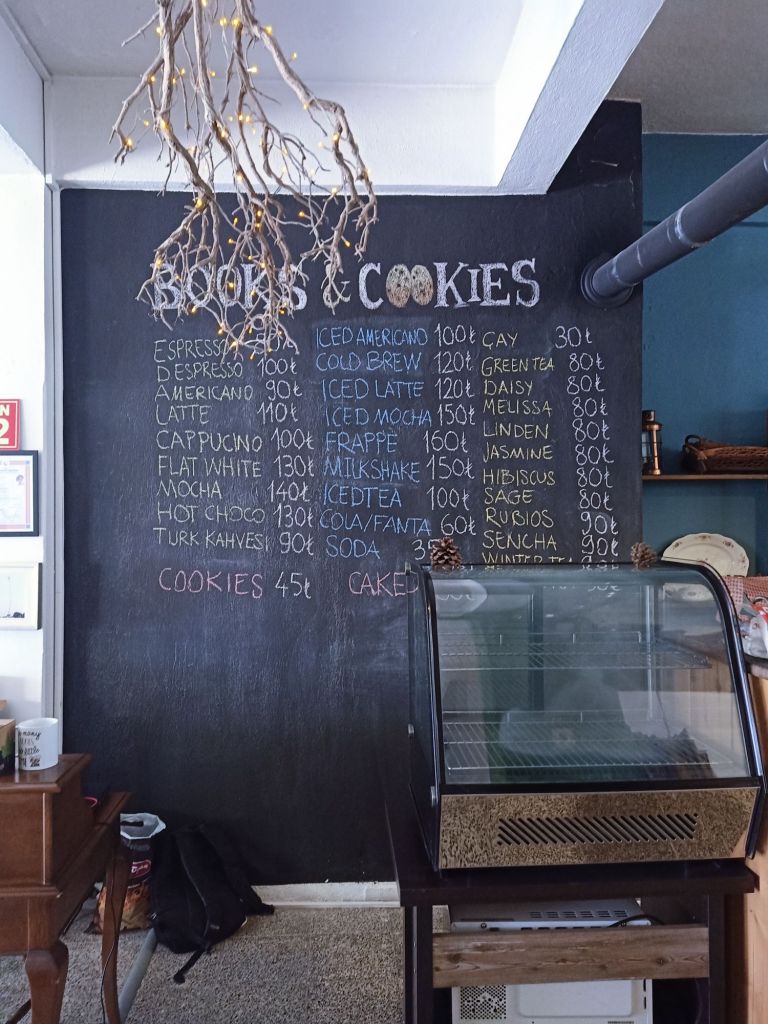 BOOKS & COOKIES
ESPRESSO
D ESPRESSO 100₺
AMERICANO 90₺
LATTE 110₺
CAPPUCINO 100₺
FLAT WHITE 130₺
MOCHA 140₺
HOT CHOCO 130₺
TURK KAHVESI 90₺
COOKIES 45₺
ICED AMERICANO 100₺
COLD BREW 120₺
ICED LATTE 120₺
ICED MOCHA 150₺
FRAPPE 160₺
MILKSHAKE 150₺
ICED TEA 100₺
COLA/FANTA 60₺
SODA
CAKE
ÇAY 30₺
GREEN TEA 80₺
DAISY 80₺
MELISSA 80₺
LINDEN 80₺
JASMINE 80₺
HIBISCUS 80₺
SAGE 80₺
RUBIOS 90₺
SENCHA 90₺
WINTER